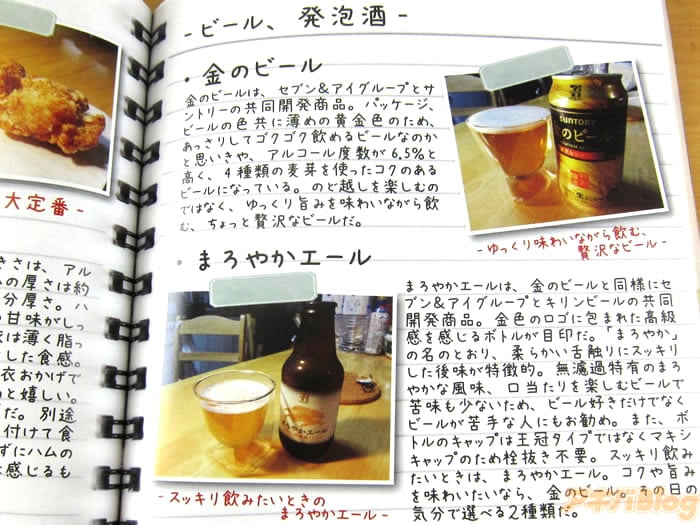 大定番-
きさは、アル
ムの厚さは約
分厚さ。ハ
の甘味がしっ
衣は薄く脂っ
した食感。
衣おかげで
のと嬉しい。
だ。別途
付けて食
ずにハムの
は感じるも
-ビール、発泡酒-
・金のビール
金のビールは、セブン&アイグループとサ
ントリーの共同開発商品。パッケージ、
ビールの色共に薄めの黄金色のため、
あっさりしてゴクゴク飲めるビールなのか
と思いきや、アルコール度数が6.5%と
高く、4種類の麦芽を使ったコクのある
ビールになっている。のど越しを楽しむの
ではなく、ゆっくり旨みを味わいながら飲
む、ちょっと贅沢なビールだ。
SUNTORY
金のビール
-ゆっくり味わいながら飲む、
贅沢なビール-
・まろやかエール
まろやかエール
-スッキリ飲みたいときの
まろやかエール-
まろやかエールは、金のビールと同様にセ
ブン&アイグループとキリンビールの共同
開発商品。金色のロゴに包まれた高級
感を感じるボトルが目印だ。「まろやか」
の名のとおり、柔らかい舌触りにスッキリ
した後味が特徴的。無濾過特有のまろ
やかな風味、口当たりを楽しむビールで
苦味も少ないため、ビール好きだけでなく
ビールが苦手な人にもお勧め。また、ボ
トルのキャップは王冠タイプではなくマキシ
キャップのため栓抜き不要。スッキリ飲み
たいときは、まろやかエール。コクや旨み
を味わいたいなら、金のビール。その日の
気分で選べる2種類だ。
アキバBlog